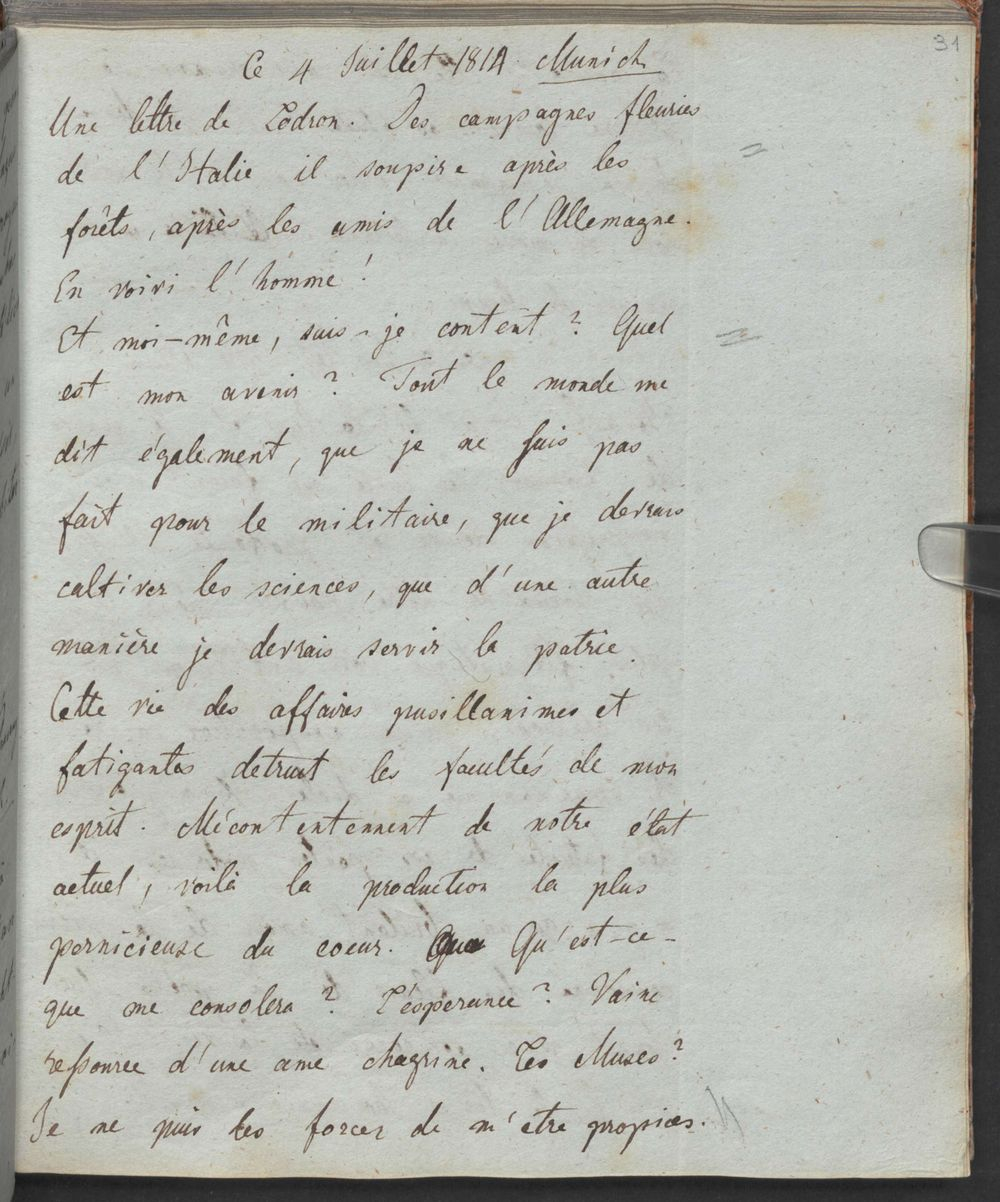 31
Ce 4 Juillet 1814. Munich
Une lettre de Lodron. Des campagnes fleuries
de l'Italie il soupire après les
forêts, après les amis de l'Allemagne.
En voici l'homme!
Et moi-même, suis-je content? Quel
est mon avenir? Tout le monde me
dit également, que je ne suis pas
fait pour le militaire, que je devrais
cultiver les sciences, que d'une autre
manière je devrais servir la patrie.
Cette vie des affaires pusillanimes et
fatigantes detruit les facultés de mon
esprit. Mécontentennent de notre état
actuel, voilà la production la plus
pernicieuse du coeur. Qu'est-ce-
que me consolera? L'ésperance? Vaine
ressource d'une ame chagrine. Les Muses?
Je ne puis les forcer de m'etre propices.